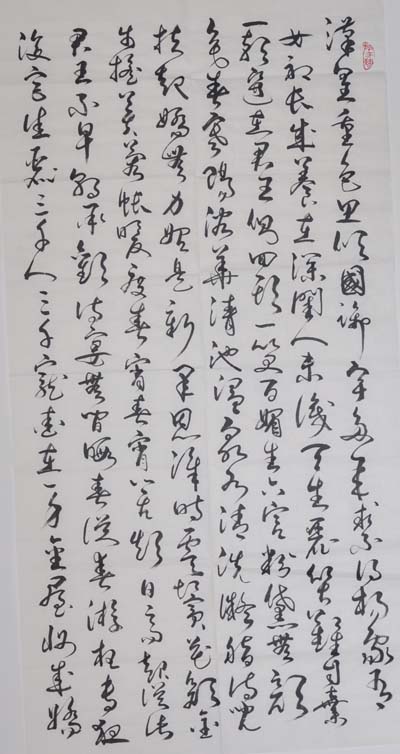 漢皇重色思傾國御宇多年求不得楊家有
女初長成養在深閨人未識天生麗質難自棄
一朝選在君王側回頭一笑百媚生六宮粉黛無顏
色春寒賜浴華清池溫泉水滑洗凝脂侍兒
扶起嬌無力始是新承恩澤時雲鬢花顏金
步搖芙蓉帳暖度春宵春宵苦短日高起從此
君王不早朝承歡侍宴無閒暇春從春遊夜專夜
後宮佳麗三千人三千寵愛在一身金屋妝成嬌